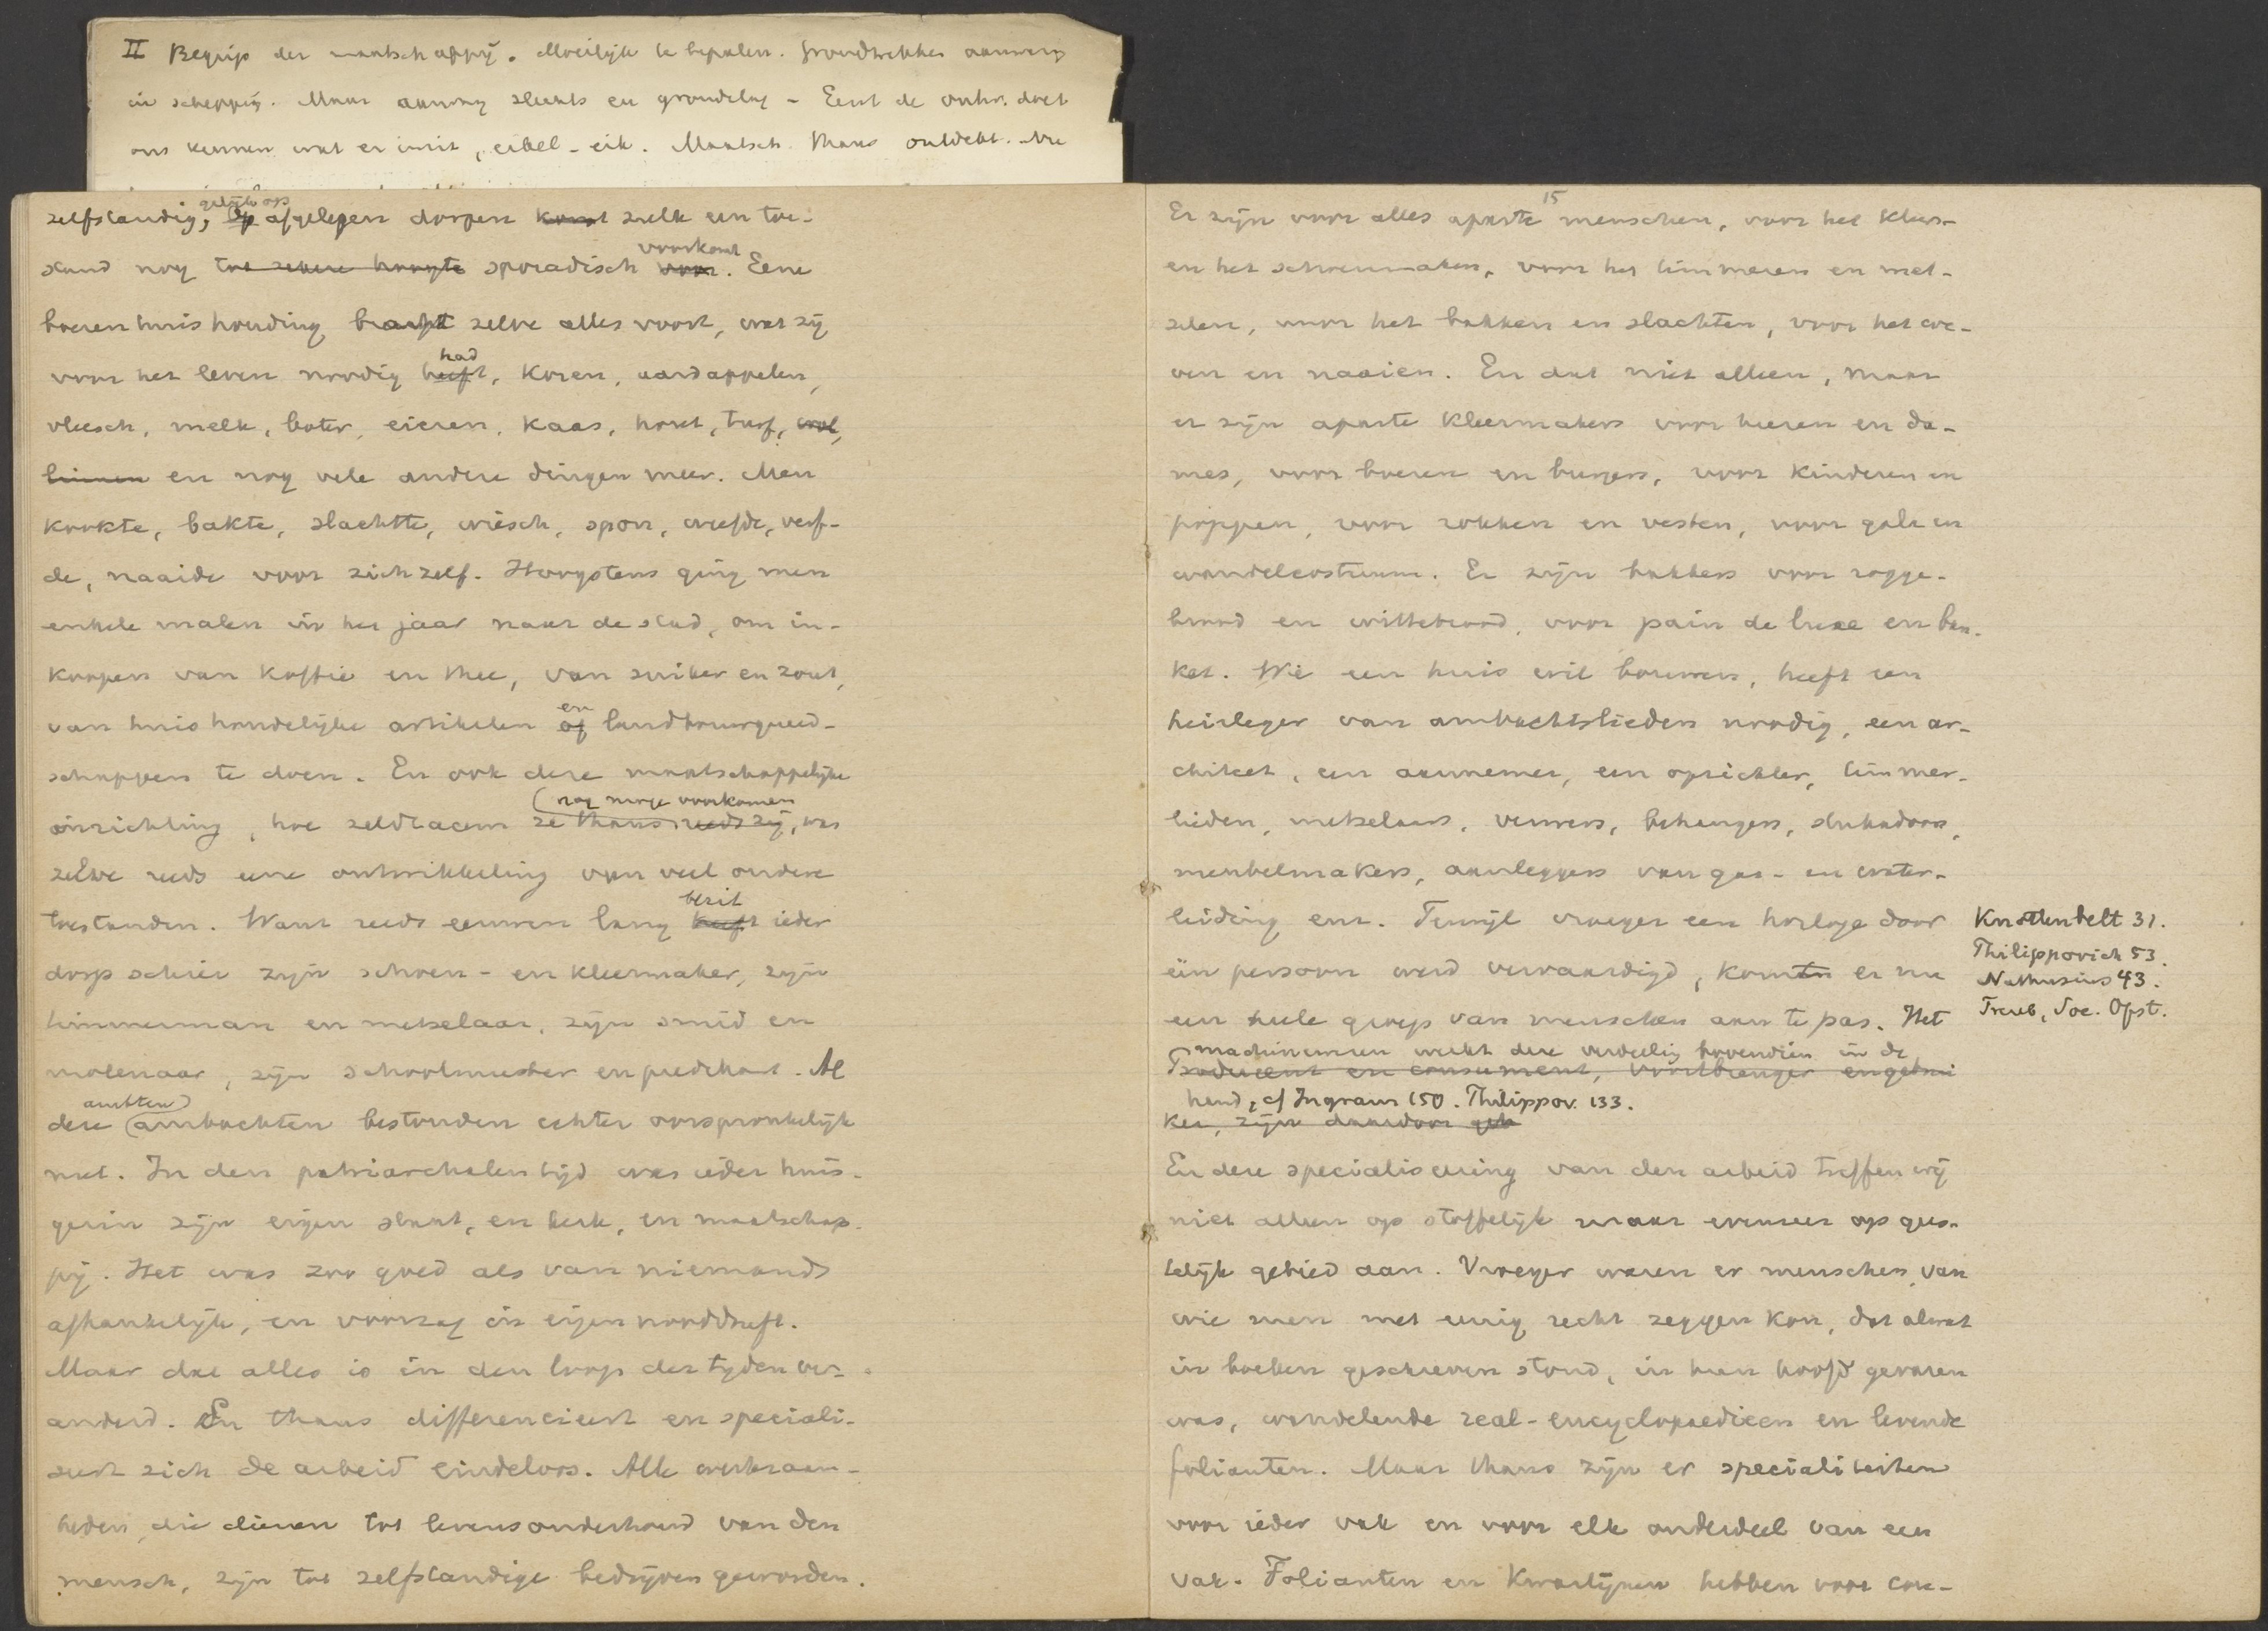 II Begrip der maatschappij. Moeilijk te bepalen. Grondtrekken aanwezig
in schepping. Maar aanweg slechts en grondslag - Eerst de ontw. doet
ons kennen wat er in is, eikel - eik. Maatsch. thans ontdekt.
gelijk op
zelfstandig, Op afgelegen dorpen komt zulk een toe-
voorkomt
stand nog tot zekere hoogte sporadisch voor. Eene
boerenhuishouding bracht zelve alles voort, wat zij
had
voor het leven noodig heeft, koren, aardappelen,
vleesch, melk, boter, eieren, kaas, hout, turf, wol,
linnen en nog vele andere dingen meer. Men
kookte, bakte, slachtte, wiesch, spon, weefde, verf-
de, naaide voor zichzelf. Hoogstens ging men
enkele malen in het jaar naar de stad, om in-
koopen van koffie en thee, van suiker en zout,
en
van huishoudelijke artikelen of landbouwgereed-
schappen te doen. En ook deze maatschappelijke
(nog moge voorkomen
inrichting, hoe zeldzaam ze thans reeds zij, was
zelve reeds eene ontwikkeling van veel oudere
bezit
toestanden. Want reeds eeuwen lang heeft ieder
dorp schier zijn schoen- en kleermaker, zijn
timmerman en metselaar, zijn smid en
molenaar, zijn schoolmeester en predikant. Al
ambten)
deze (ambachten bestonden echter oorspronkelijk
niet. In den patriarchalen tijd was ieder huis-
gezin zijn eigen staat, en kerk, en maatschap-
pij. Het was zoo goed als van niemand
afhankelijk, en voorzag in eigen nooddruft.
Maar dat alles is in den loop der tijden ver-
anderd. En thans differencieert en speciali-
seert zich de arbeid eindeloos. Alle werkzaam-
heden, die dienen tot levensonderhoud van den
mensch, zijn tot zelfstandige bedrijven geworden.
15
Er zijn voor alles aparte menschen, voor het kleer-
en het schoenmaken, voor het timmeren en met-
selen, voor het bakken en slachten, voor het we-
ven en naaien. En dat niet alleen, maar
er zijn aparte kleermakers voor heeren en da-
mes, voor boeren en burgers, voor kinderen en
poppen, voor rokken en vesten, voor gala en
wandelcostuum. Er zijn bakkers voor rogge-
brood en wittebrood, voor pain de luxe en ban-
ket. Wie een huis wil bouwen, heeft een
heirleger van ambachtslieden noodig, een ar-
chitect, een aannemer, een opzichter, timmer-
lieden, metselaars, ververs, behangers, stukadoors,
meubelmakers, aanleggers van gas- en water-
leiding enz. Terwijl vroeger een horloge door
één persoon werd vervaardigd, komen er nu
een heele groep van menschen aan te pas. Het
machinewezen werkt deze verdeeling bovendien in de
Producent en consument, voortbrenger en gebrui
hand, cf Ingram 150. Philippov. 133.
ker, zijn daardoor
En deze specialiseering van den arbeid treffen wij
niet alleen op stoffelijk maar evenzeer op gees-
telijk gebied aan. Vroeger waren er menschen, van
wie men met eenig recht zeggen kon, dat alwat
in boeken geschreven stond, in hun hoofd gevaren
was, wandelende real-encyclopaedieen en levende
folianten. Maar thans zijn er specialiteiten
voor ieder vak en voor elk onderdeel van een
vak. Folianten en kwartijnen hebben voor
Knottenbelt 31.
Philippovich 53.
Nathusius 43.
Treub, Soc. Opst.